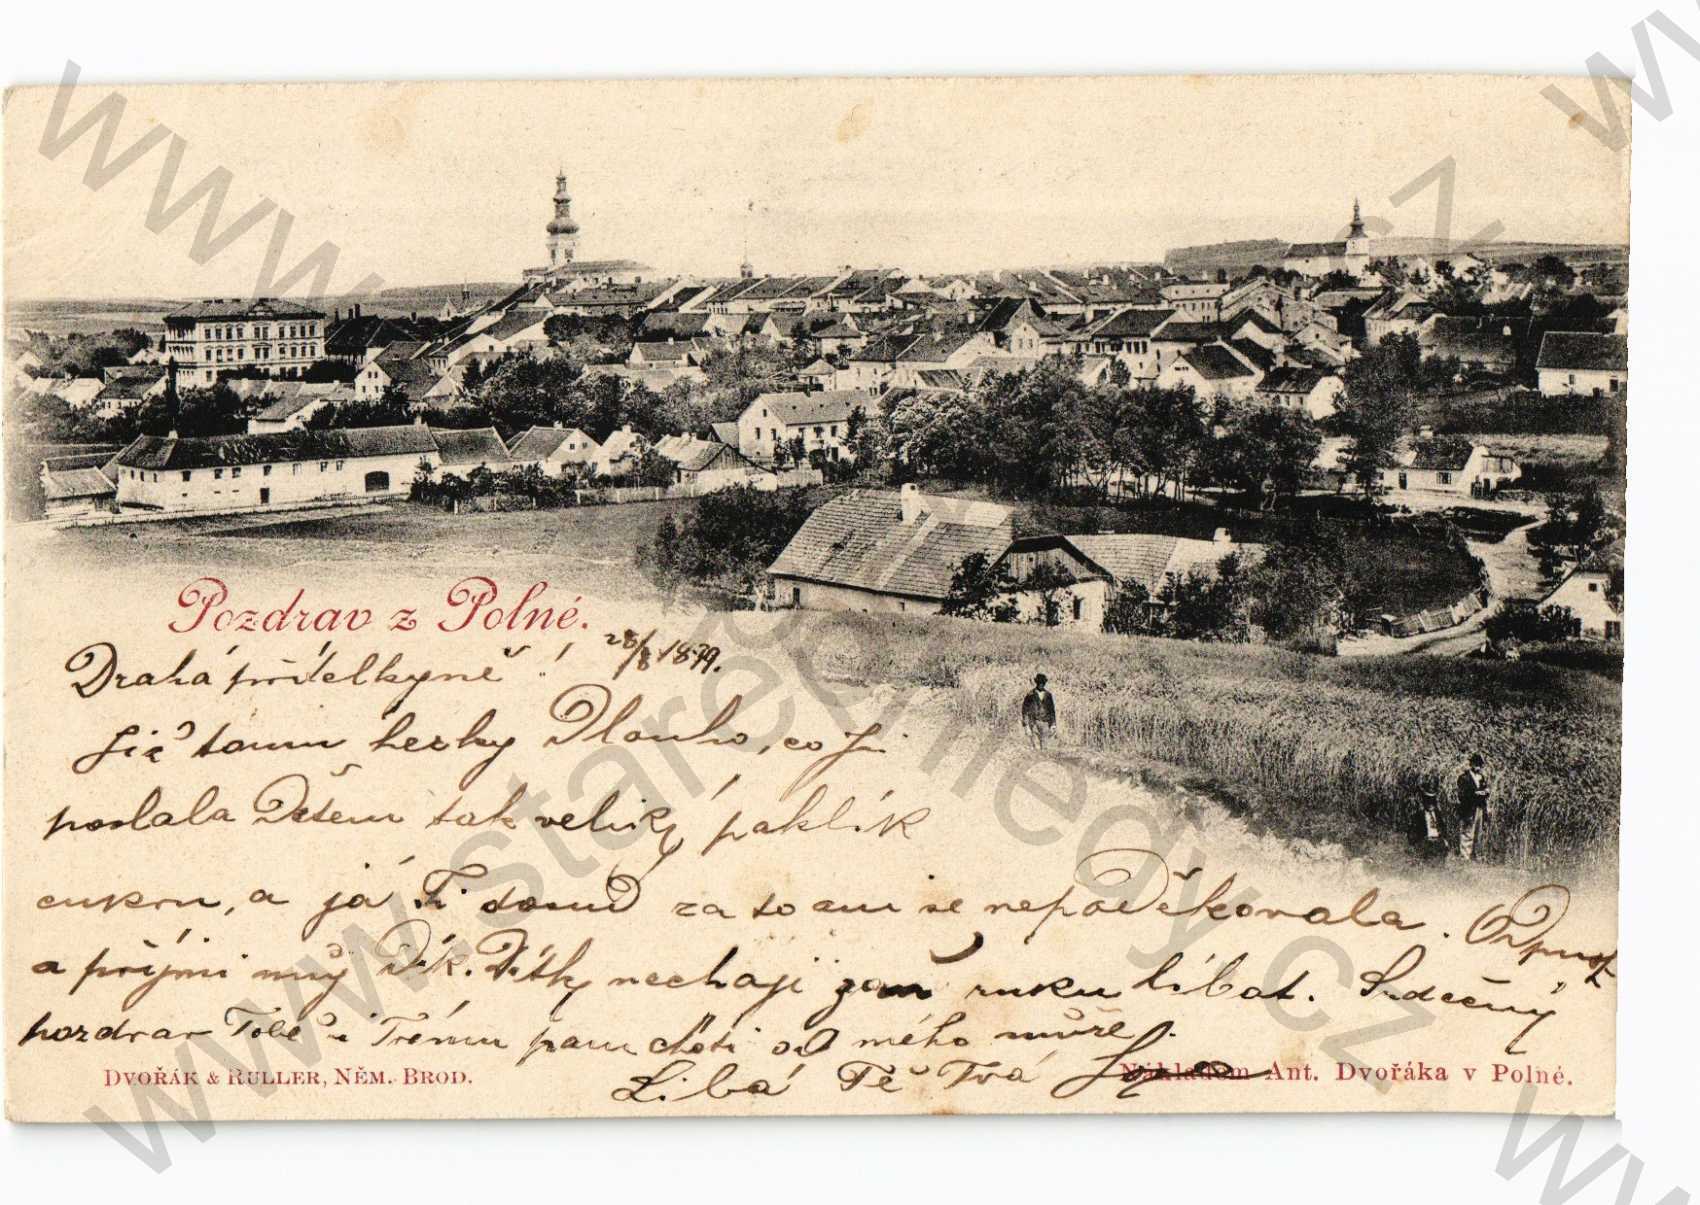 Pozdrav z Polné.
Drahá přítelkyně! 28/8 18
již tomu hezky Dlouho, co jsi
poslala Dětem tak veliký paklík
cukru, a já Ti dosud za to ani se nepoděkovala. Odpusť
a přijmi můj Dík. Dítky nechají ruku líbat. Srdečný
pozdrav Tobě i Tvému panu choti od mého muže.
Líbá Tě Tvá
DVOŘÁK & RULLER, NĚM. BROD.
Nákladem Ant. Dvořáka v Polné.
www.starepohledy.cz